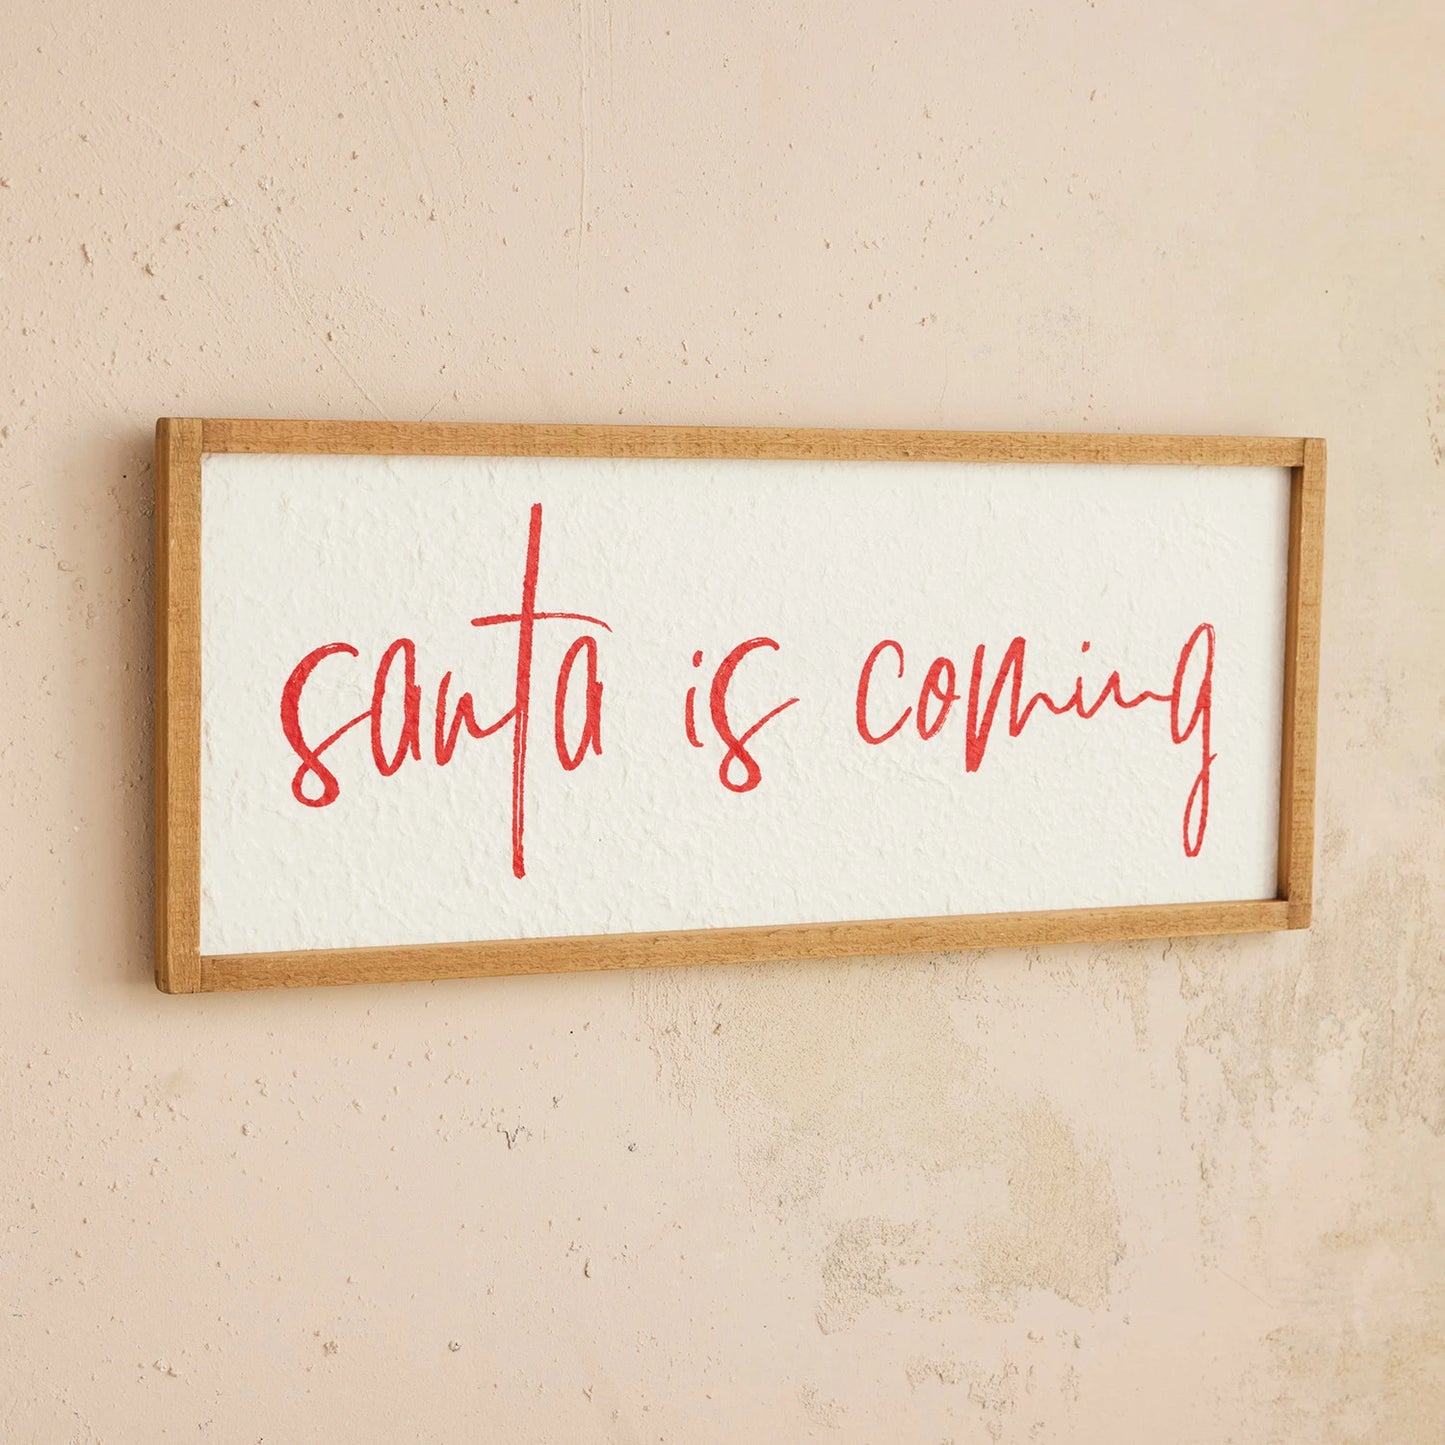 santa is coming